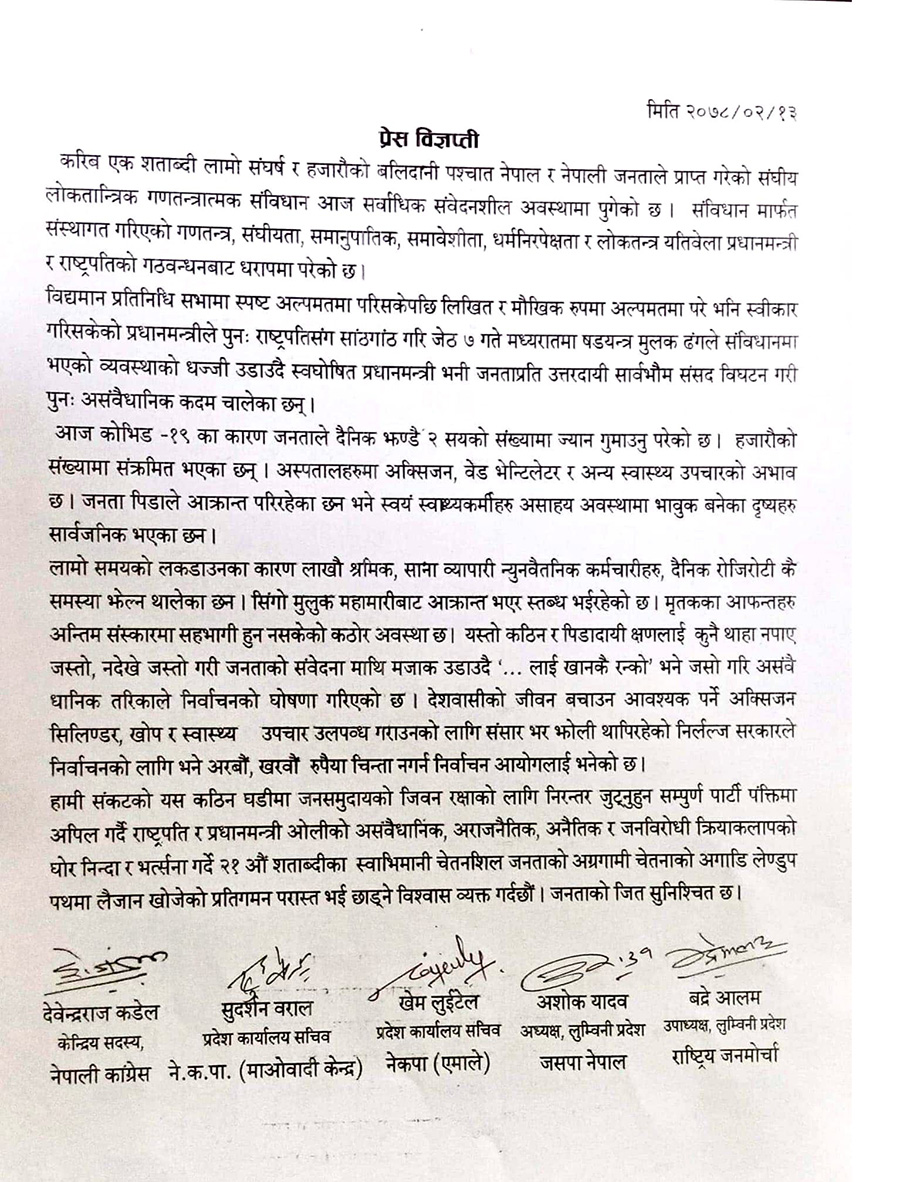 मिति २०७८/०२/१३
प्रेस विज्ञप्ती
करिब एक शताब्दी लामो संघर्ष र हजारौको बलिदानी पश्चात नेपाल र नेपाली जनताले प्राप्त गरेको संघीय
लोकतान्त्रिक गणतन्त्रात्मक संविधान आज सर्वाधिक संवेदनशील अवस्थामा पुगेको छ । संविधान मार्फत
संस्थागत गरिएको गणतन्त्र, संघीयता, समानुपातिक, समावेशीता, धर्मनिरपेक्षता र लोकतन्त्र यतिवेला प्रधानमन्त्री
र राष्ट्रपतिको गठवन्धनबाट धरापमा परेको छ ।
विद्यमान प्रतिनिधि सभामा स्पष्ट अल्पमतमा परिसकेपछि लिखित र मौखिक रुपमा अल्पमतमा परे भनि स्वीकार
गरिसकेको प्रधानमन्त्रीले पुनः राष्ट्रपतिसंग सांठगांठ गरि जेठ ७ गते मध्यरातमा षडयन्त्र मुलक ढंगले संविधानमा
भएको व्यवस्थाको धज्जी उडाउदै स्वघोषित प्रधानमन्त्री भनी जनताप्रति उत्तरदायी सार्वभौम संसद विघटन गरी
पुनः असंवैधानिक कदम चालेका छन् ।
आज कोभिड -१९ का कारण जनताले दैनिक झण्डै २ सयको संख्यामा ज्यान गुमाउनु परेको छ । हजारौको
संख्यामा संक्रमित भएका छन् । अस्पतालहरुमा अक्सिजन, वेड भेन्टिलेटर र अन्य स्वास्थ्य उपचारको अभाव
छ । जनता पिडाले आक्रान्त परिरहेका छन भने स्वयं स्वाथ्यकर्मीहरु असाहय अवस्थामा भावुक बनेका दृष्यहरु
सार्वजनिक भएका छन ।
लामो समयको लकडाउनका कारण लाखौ श्रमिक, साना व्यापारी न्युनवैतनिक कर्मचारीहरु, दैनिक रोजिरोटी कै
समस्या झेल्न थालेका छन । सिंगो मुलुक महामारीबाट आक्रान्त भएर स्तब्ध भईरहेको छ । मृतकका आफन्तहरु
अन्तिम संस्कारमा सहभागी हुन नसकेको कठोर अवस्था छ । यस्तो कठिन र पिडादायी क्षणलाई कुनै थाहा नपाए
जस्तो, नदेखे जस्तो गरी जनताको संवेदना माथि मजाक उडाउदै ‘... लाई खानकै रन्को’ भने जसो गरि असंवै
धानिक तरिकाले निर्वाचनको घोषणा गरिएको छ । देशवासीको जीवन बचाउन आवश्यक पर्ने अक्सिजन
सिलिण्डर, खोप र स्वास्थ्य उपचार उलपव्ध गराउनको लागि संसार भर झोली थापिरहेको निर्लल्ज सरकारले
निर्वाचनको लागि भने अरबौं, खरवौं रुपैया चिन्ता नगर्न निर्वाचन आयोगलाई भनेको छ ।
हामी संकटको यस कठिन घडीमा जनसमुदायको जिवन रक्षाको लागि निरन्तर जुट्नुहुन सम्पुर्ण पार्टी पंक्तिमा
अपिल गर्दै राष्ट्रपति र प्रधानमन्त्री ओलीको असंवैधानिक, अराजनैतिक, अनैतिक र जनविरोधी क्रियाकलापको
घोर निन्दा र भर्त्सना गर्दे २१ औं शताब्दीका स्वाभिमानी चेतनशिल जनताको अग्रगामी चेतनाको अगाडि लेण्डुप
पथमा लैजान खोजेको प्रतिगमन परास्त भई छाड्ने विश्वास व्यक्त गर्दछौं । जनताको जित सुनिश्चित छ ।
देवेन्द्रराज कडेल सुदर्शन वराल खेम लुईटेल अशोक यादव बद्रे आलम
केन्द्रिय सदस्य, प्रदेश कार्यालय सचिव प्रदेश कार्यालय सचिव अध्यक्ष, लुम्विनी प्रदेश उपाध्यक्ष, लुम्विनी प्रदेश
नेपाली कांग्रेस ने.क.पा. (माओवादी केन्द्र) नेकपा (एमाले) जसपा नेपाल राष्ट्रिय जनमोर्चा